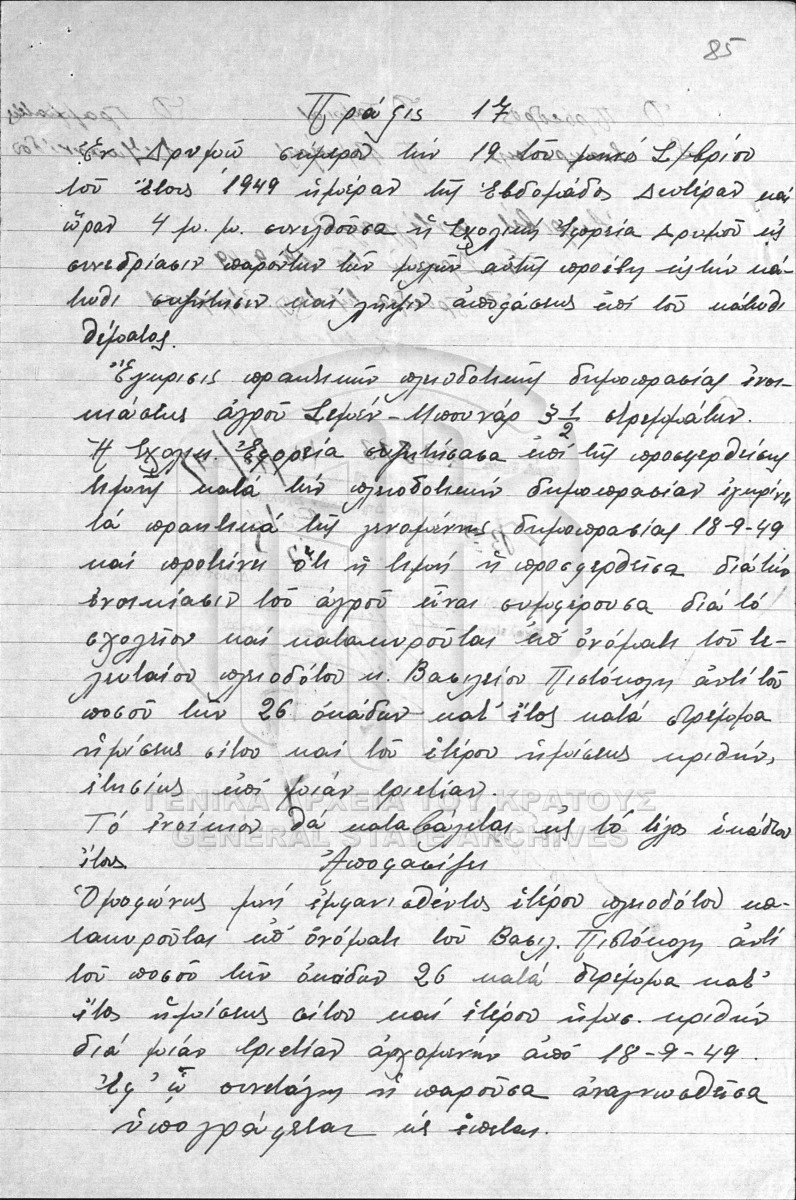 85
Πράξις 17
Ἐν Δρυμῷ σήμερον τήν 19 τοῦ μηνός Σ/μβρίου
τοῦ ἔτους 1949 ἡμέραν τῆς ἑβδομάδος Δευτέραν καί
ὥραν 4 μ. μ. συνελθοῦσα ἡ Σχολική Ἐφορεία Δρυμοῦ εἰς
συνεδρίασιν παρόντων τῶν μελῶν αὐτῆς προέβη εἰς τήν κά-
τωθι συζήτησιν καί λῆψιν ἀποφάσεως ἐπί τοῦ κάτωθι
θέματος.
Ἔγκρισις πρακτικῶν πλειοδοτικῆς δημοπρασίας ἐνοι-
κιάσεως ἀγροῦ Σεμέν-Μπουνάρ 3 1/2 στρεμμάτων.
Ἡ Σχολικ. Ἐφορεία συζητήσασα ἐπί τῆς προσφερθείσης
τιμῆς κατά τήν πλειοδοτικήν δημοπρασίαν ἐγκρίνει
τά πρακτικά τῆς γενομένης δημοπρασίας 18-9-49
καί προτείνει ὅτι ἡ τιμή ἡ προσφερθεῖσα διά τήν
ἐνοικίασιν τοῦ ἀγροῦ εἶναι συμφέρουσα διά τό
σχολεῖον καί κατακυροῦται ἐπ' ὀνόματι τοῦ τε-
λευταίου πλειοδότου κ. Βασιλείου Πιστόκλη ἀντί τοῦ
ποσοῦ τῶν 26 ὀκάδων κατ' ἔτος κατά στρέμμα
ἡμίσεως σίτου καί τοῦ ἑτέρου ἡμίσεως κριθῆς,
ἐτησίως ἐπί μίαν τριετίαν.
Τό ἐνοίκιον θά καταβάλεται εἰς τό τέλος ἑκάστου
ἔτους Ἀποφασίζει
Ὁμοφώνως μή ἐμφανισθέντος ἑτέρου πλειοδότου κα-
τακυροῦται ἐπ' ὀνόματι τοῦ Βασιλ. Πιστόκλη ἀντί
τοῦ ποσοῦ τῶν ὀκάδων 26 κατά στρέμμα κατ'
ἔτος ἡμίσεως σίτου καί ἑτέρου ἡμισ. κριθῆς
διά μίαν τριετίαν ἀρχομένην ἀπό 18-9-49.
Ἐφ' ᾧ συνετάγη ἡ παροῦσα ἀναγνωσθεῖσα
ὑπογράφεται ὡς ἕπεται.
ΓΕΝΙΚΑ ΑΡΧΕΙΑ ΤΟΥ ΚΡΑΤΟΥΣ
GENERAL STATE ARCHIVES